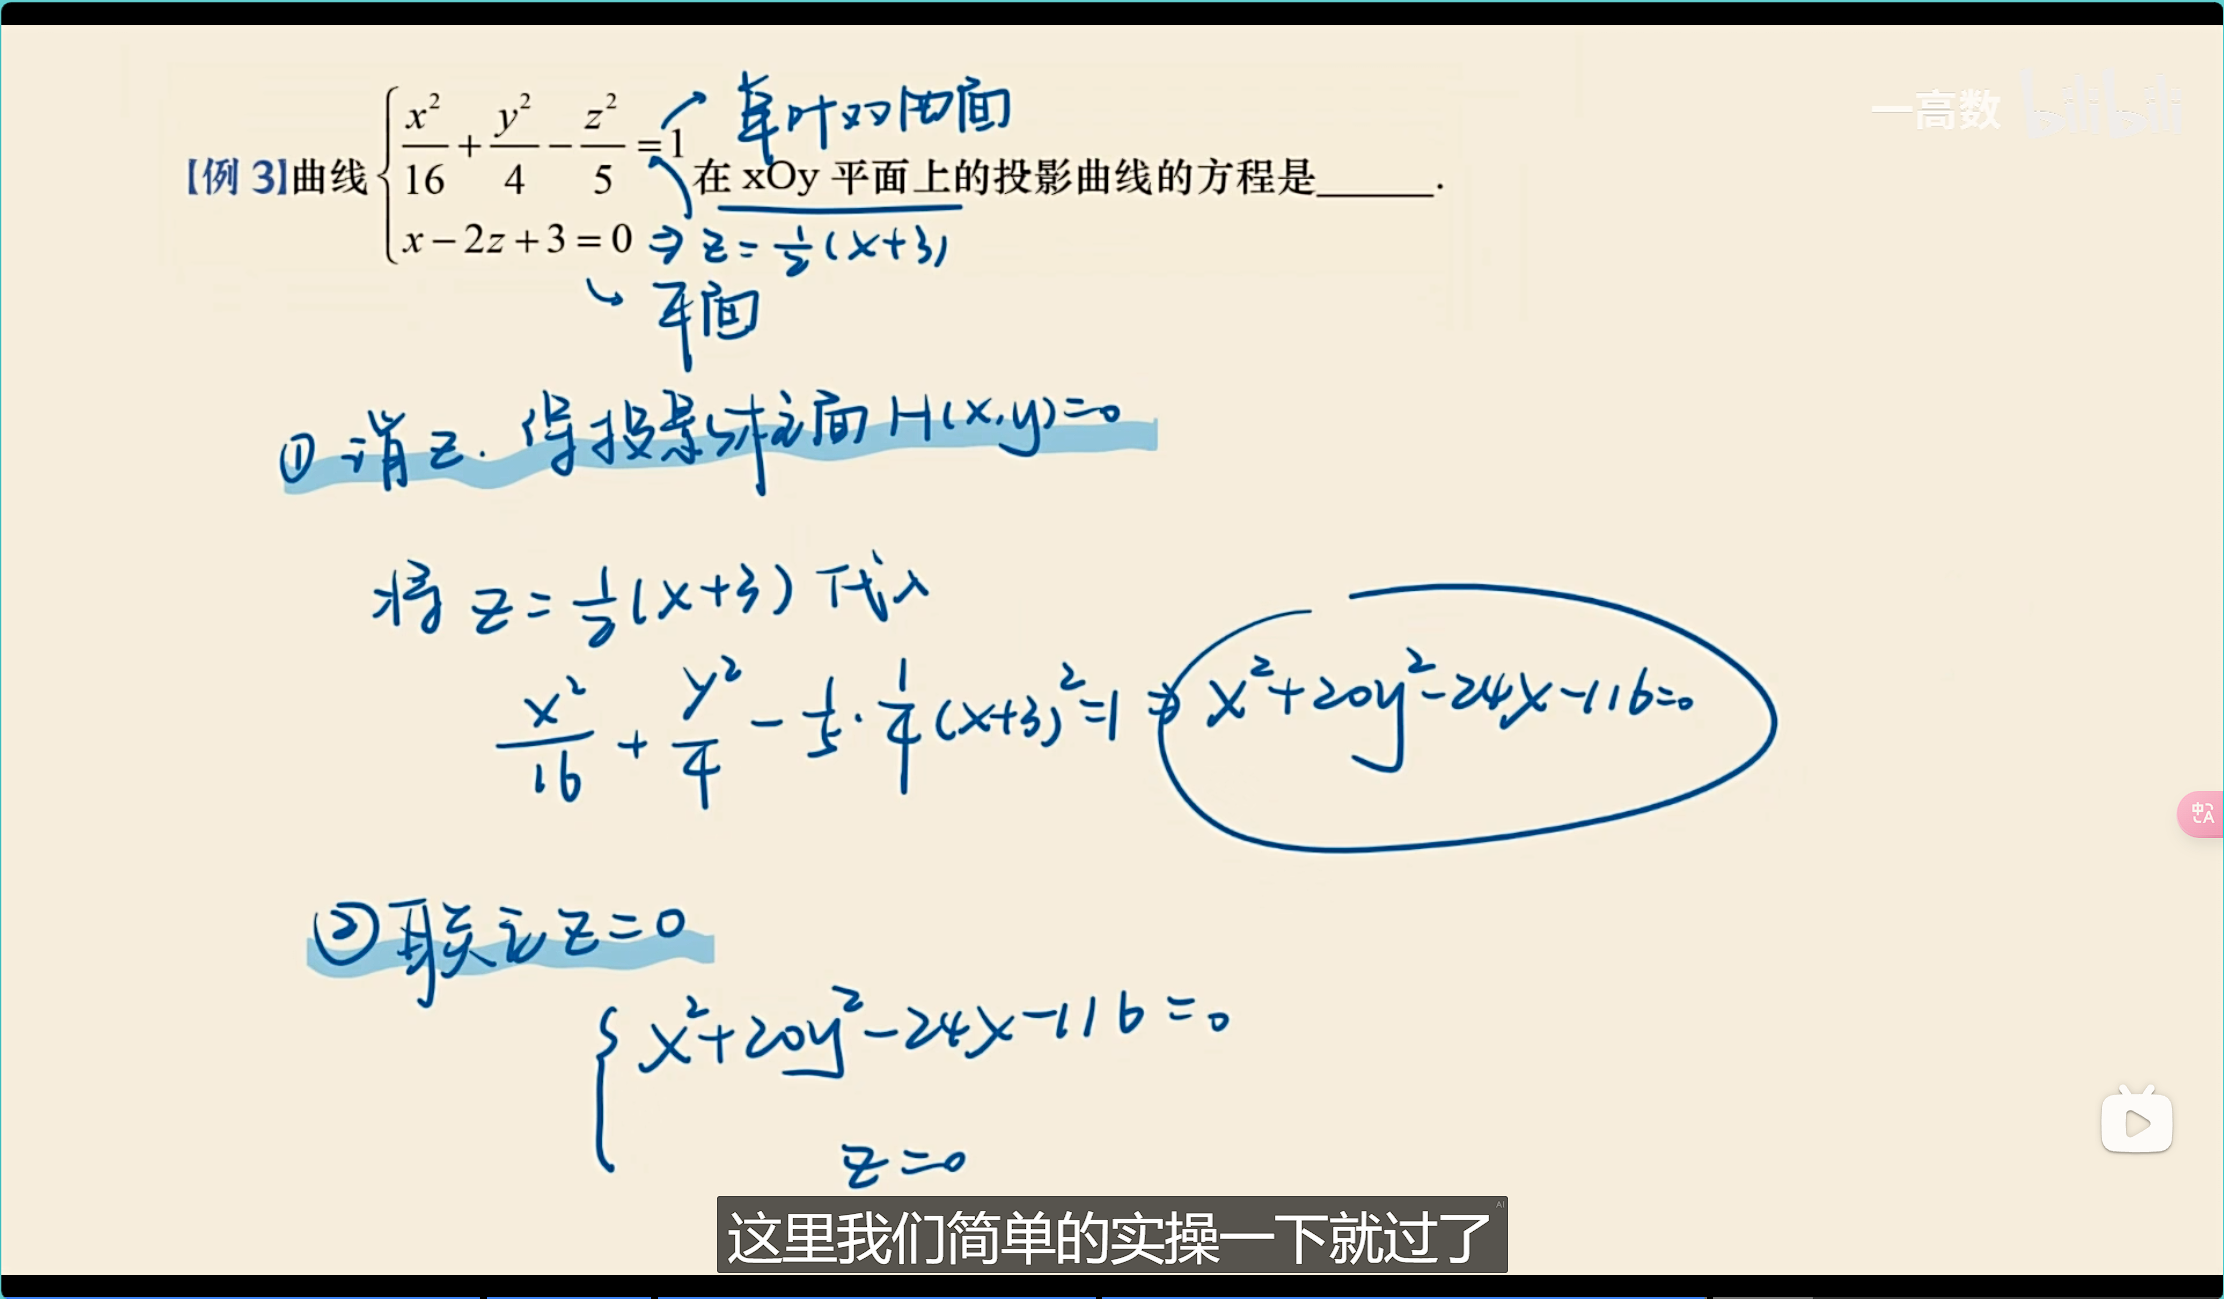 一高数 bilibili
单叶双曲面
【例 3】曲线 { x²/16 + y²/4 − z²/5 = 1
x − 2z + 3 = 0 在 xOy 平面上的投影曲线的方程是______.
⇒ z = 1/2 (x+3)
平面
① 消 z. 得投影柱面 H(x,y)=0
将 z = 1/2 (x+3) 代入
x²/16 + y²/4 − 1/5 · 1/4 (x+3)² = 1 ⇒ x²+20y²−24x−116=0
② 联立 z=0
{ x²+20y²−24x−116=0
z=0
这里我们简单的实操一下就过了
AI
中A